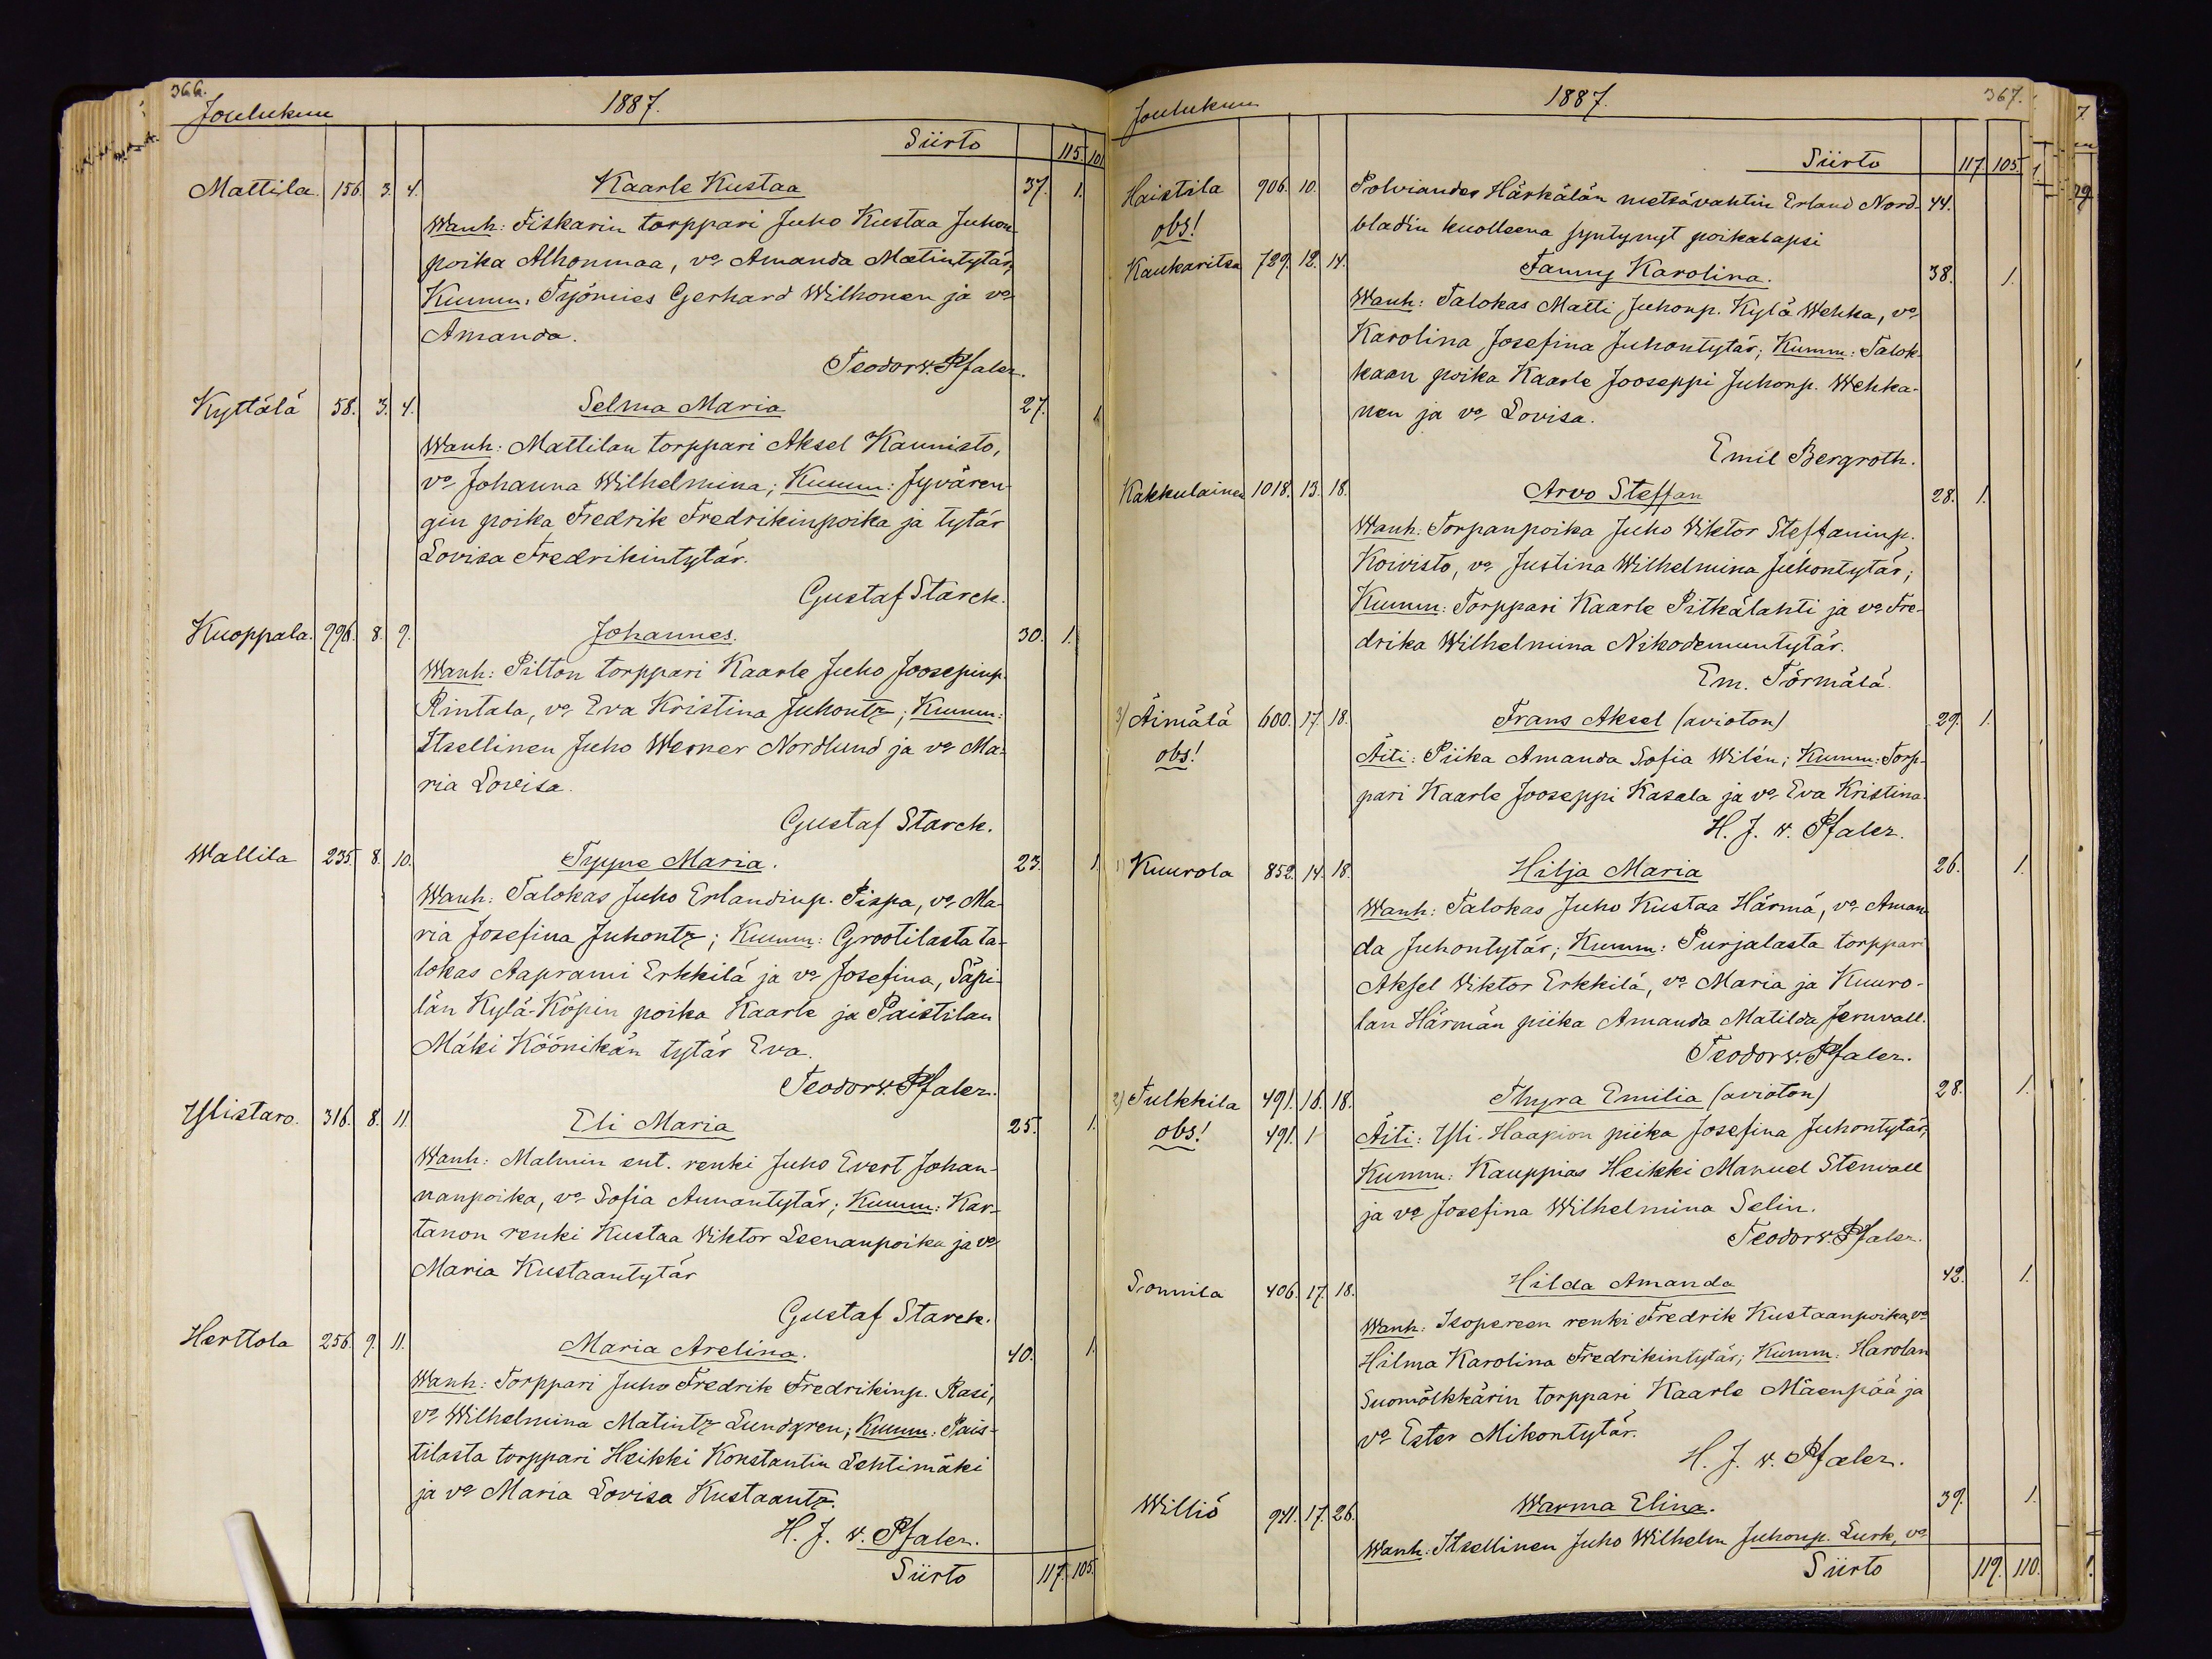 366.
Joulukuu
1887.
Siirto 115. 101
Mattila. 156. 3. 4. Kaarle Kustaa 37. 1.
Wanh: Fiskarin torppari Juho Kustaa Juhon-
poika Alhonmaa, vo Amanda Matintytär;
Kumm: Työmies Gerhard Wilhonen ja vo
Amanda.
Teodor v. Pfaler.
Kyttälä 58. 3. 4. Selma Maria 27. 1
Wanh: Mattilan torppari Aksel Kaunisto,
vo Johanna Wilhelmina; Kumm: Jyvären-
gin poika Fredrik Fredrikinpoika ja tytär
Lovisa Fredrikintytär.
Gustaf Starck.
Kuoppala. 996. 8. 9. Johannes. 30. 1.
Wanh: Pilton torppari Kaarle Juho Joosepinp.
Rintala, vo Eva Kristina Juhontr; Kumm:
Itsellinen Juho Werner Nordlund ja vo Ma-
ria Lovisa.
Gustaf Starck.
Wallila 235. 8. 10. Tyyne Maria. 23. 1.
Wanh: Talokas Juho Erlandinp. Pispa, vo Ma-
ria Josefina Juhontr; Kumm: Grootilasta ta-
lokas Aaprami Erkkilä ja vo Josefina, Säpi-
län Kylä-Köpin poika Kaarle ja Paistilan
Mäki Köönikän tytär Eva.
Teodor v. Pfaler.
Ylistaro. 316. 8. 11. Eli Maria 25. 1.
Wanh: Malmin ent. renki Juho Evert Johan-
nanpoika, vo Sofia Annantytär; Kumm: Kar-
tanon renki Kustaa Viktor Leenanpoika ja vo
Maria Kustaantytär
Gustaf Starck.
Herttola 256. 9. 11. Maria Arelina. 40. 1.
Wanh: Torppari Juho Fredrik Fredrikinp. Rasi,
vo Wilhelmina Matintr Lundgren; Kumm: Pais-
tilasta torppari Heikki Konstantin Lehtimäki
ja vo Maria Lovisa Kustaantr.
H. J. v. Pfaler.
Siirto 117. 105.
Joulukuu
1887.
367.
Siirto 117 105. 1.
Haistila 906. 10. Polviander Härkälän metsävahtin Erland Nord- 44.
obs! bladin kuolleena syntynyt poikalapsi
Kaukaritsa 729. 12. 14. Fanny Karolina. 38. 1.
Wanh: Talokas Matti Juhonp. Kylä Wehka, vo
Karolina Josefina Juhontytär; Kumm: Talok-
kaan poika Kaarle Jooseppi Juhonp. Wehka-
nen ja vo Lovisa.
Emil Bergroth.
Kakkulainen 1018. 13. 18. Arvo Steffan 28. 1.
Wanh: Torpanpoika Juho Viktor Steffaninp.
Koivisto, vo Justina Wilhelmina Juhontytär;
Kumm: Torppari Kaarle Pitkälahti ja vo Fre-
drika Wilhelmina Nikodemuntytär.
Em. Törmälä.
3) Äimälä 600. 17. 18. Frans Aksel (avioton) 29. 1.
obs! Äiti: Piika Amanda Sofia Wilén; Kumm: Torp-
pari Kaarle Jooseppi Kasala ja vo Eva Kristina.
H. J. v. Pfaler.
1) Kuurola 852. 14. 18. Hilja Maria 26. 1.
Wanh: Talokas Juho Kustaa Härmä, vo Aman-
da Juhontytär; Kumm: Purjalasta torppari
Aksel Viktor Erkkilä, vo Maria ja Kuuro-
lan Härmän piika Amanda Matilda Jernvall.
Teodor v. Pfaler.
2) Tulkkila 491. 16. 18. Thyra Emilia (avioton) 28. 1.
obs! 491. 1 Äiti: Yli-Haapion piika Josefina Juhontytär;
Kumm: Kauppias Heikki Manuel Stenvall
ja vo Josefina Wilhelmina Selin.
Teodor v. Pfaler.
Sonnila 406. 17. 18. Hilda Amanda 42. 1.
Wanh: Isopereen renki Fredrik Kustaanpoika, vo
Hilma Karolina Fredrikintytär; Kumm: Harolan
Suomölkkärin torppari Kaarle Mäenpää ja
vo Ester Mikontytär.
H. J. v. Pfaler.
Williö 941. 17. 26. Warma Elina. 39. 1.
Wanh: Itsellinen Juho Wilhelm Juhonp. Lurk, vo
Siirto 119. 110.